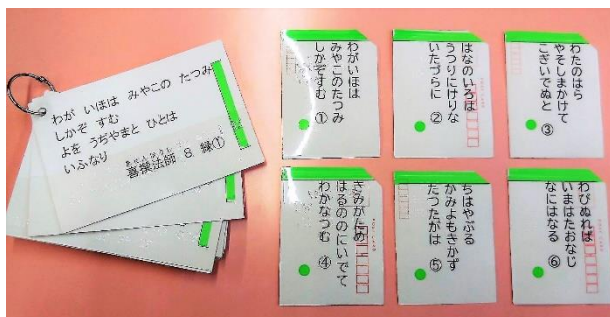 わが いほは みやこの たつみ
しかぞ すむ
よを うぢやまと ひとは
いふなり
きせんほうし
喜撰法師 8 緑①
わがいほは
みやこのたつみ
しかぞすむ ①
はなのいろは
うつりにけりな
いたづらに ②
わたのはら
やそしまかけて
こぎいでぬと ③
きみがため
はるののにいでて
わかなつむ ④
ちはやぶる
かみよもきかず
たつたがは ⑤
わびぬれば
いまはたおなじ
なにはなる ⑥